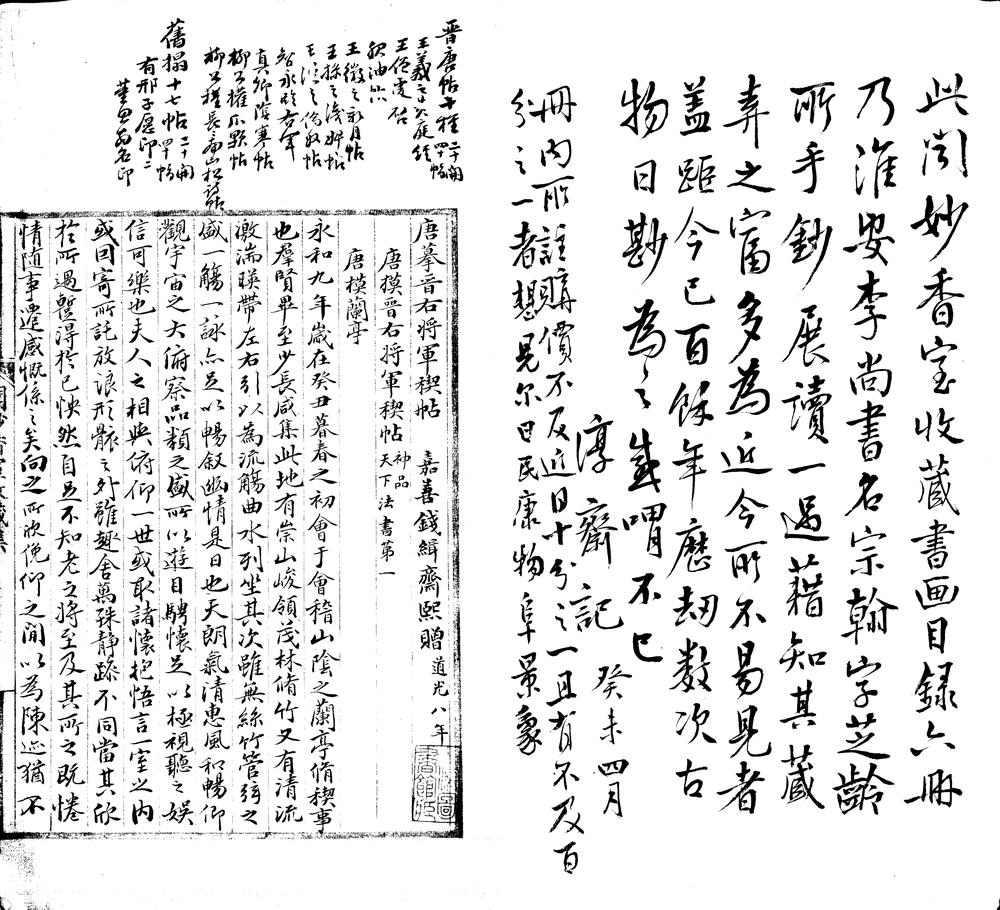 此聞妙香室收藏書画目録六冊
乃淮安李尚書名宗翰字芝齡
所手鈔展讀一過藉知其藏
弆之富多為近今所不易見者
蓋距今已百餘年歷劫数次古
物日尠為之感喟不已
淳齋記 癸未四月
冊內所註購價不及近日十分之一且有不及百
分之一者想見尔日民康物阜景象
晉唐帖十種 二十開 四十幅
王羲之黄庭經
王僧虔啟
王徽之新月帖
王操之婢帖
王渙之帖
智永
真卿寒帖
柳公權帖
柳公權長帖
舊搨十七帖 二十開 四十幅
有邢子愿印二
董思翁名印
唐摹晉右將軍禊帖 嘉善錢緝齋熙贈 道光八年
唐模晉右將軍禊帖 神品 天下法書第一
唐模蘭亭
永和九年歲在癸丑暮春之初會于會稽山陰之蘭亭脩禊事
也羣賢畢至少長咸集此地有崇山峻領茂林脩竹又有清流
激湍暎帶左右引以為流觴曲水列坐其次雖無絲竹管弦之
盛一觴一詠亦足以暢叙幽情是日也天朗氣清惠風和暢仰
觀宇宙之大俯察品類之盛所以遊目騁懷足以極視聽之娛
信可樂也夫人之相與俯仰一世或取諸懷抱悟言一室之內
或因寄所託放浪形骸之外雖趣舍萬殊静躁不同當其欣
於所遇蹔得於己怏然自足不知老之將至及其所之既惓
情隨事遷感慨係之矣向之所欣俛仰之閒以為陳迹猶不